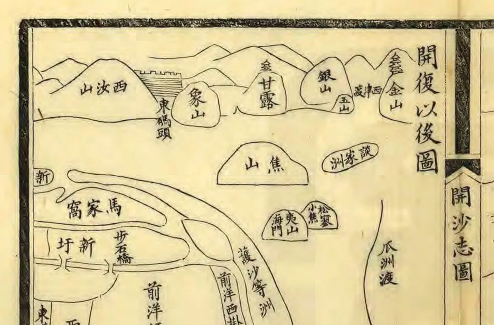 開復以後圖
開沙志圖
金山
西津渡
銀山
玉山
甘露
象山
東碼頭
西汝山
談家洲
焦山
松寥
小焦
夷山
海門
瓜洲渡
新
馬家窩
護沙等洲
步石橋
新圩
前洋西掛
前洋
東
西